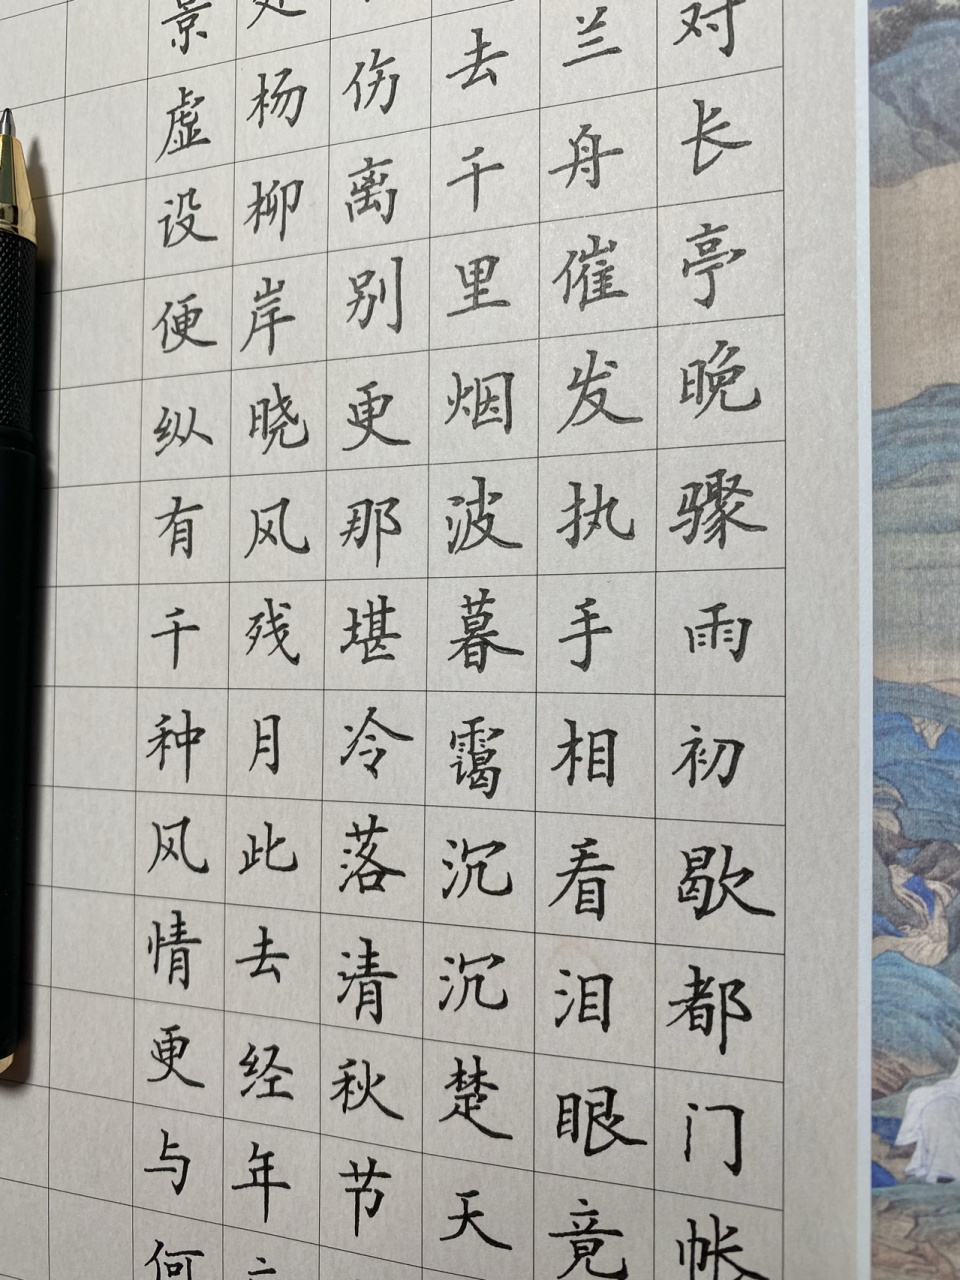 对长亭晚骤雨初歇都门帐
兰舟催发执手相看泪眼竟
去千里烟波暮霭沉沉楚天
伤离别更那堪冷落清秋节
处杨柳岸晓风残月此去经年
景虚设便纵有千种风情更与何